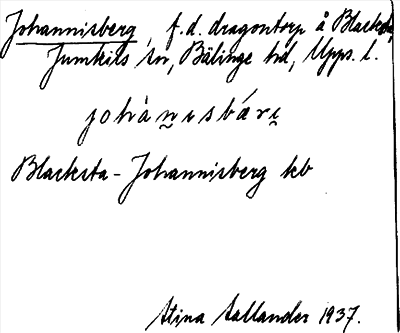 Johannisberg, f.d. dragontorp å Blacksta,
Jumkils sn, Bälinge hd, Upps. l.
johànısbárı
Blacksta-Johannisberg kb
Stina Sallander 1937.